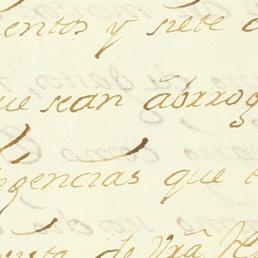 entos y siete
que sean abrrog
egencias que
de Vrã